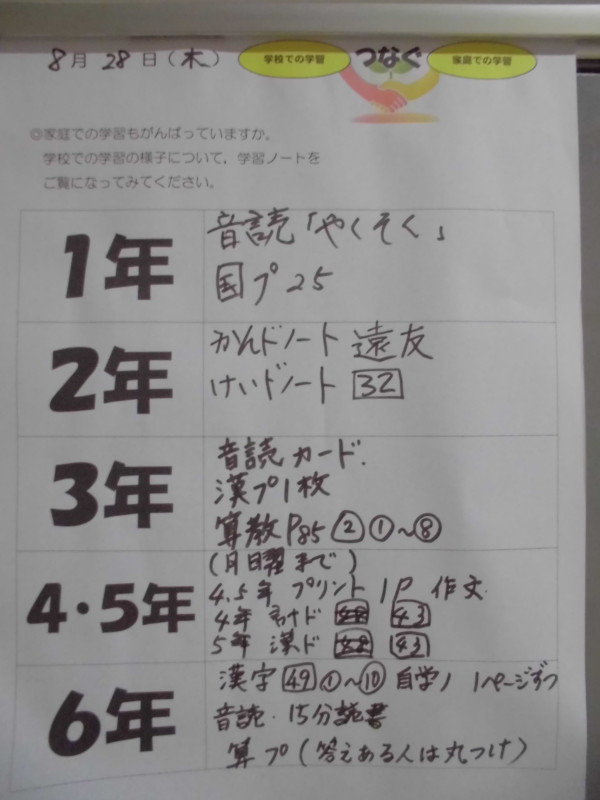 8月28日(木)
学校での学習 つなぐ 家庭での学習
◎家庭での学習もがんばっていますか。
学校での学習の様子について，学習ノートを
ご覧になってみてください。
1年
音読「やくそく」
国プ25
2年
かんドノート 遠友
けいドノート 32
3年
音読カード.
漢プ1枚
算数P85 ② ①~⑧
4・5年
(月曜まで)
4.5年 プリント 1P 作文
4年 43
5年 漢ド 43
6年
漢字 49 ①~⑩ 自学ノ 1ページずつ
音読・15分読書
算プ(答えある人は丸つけ)